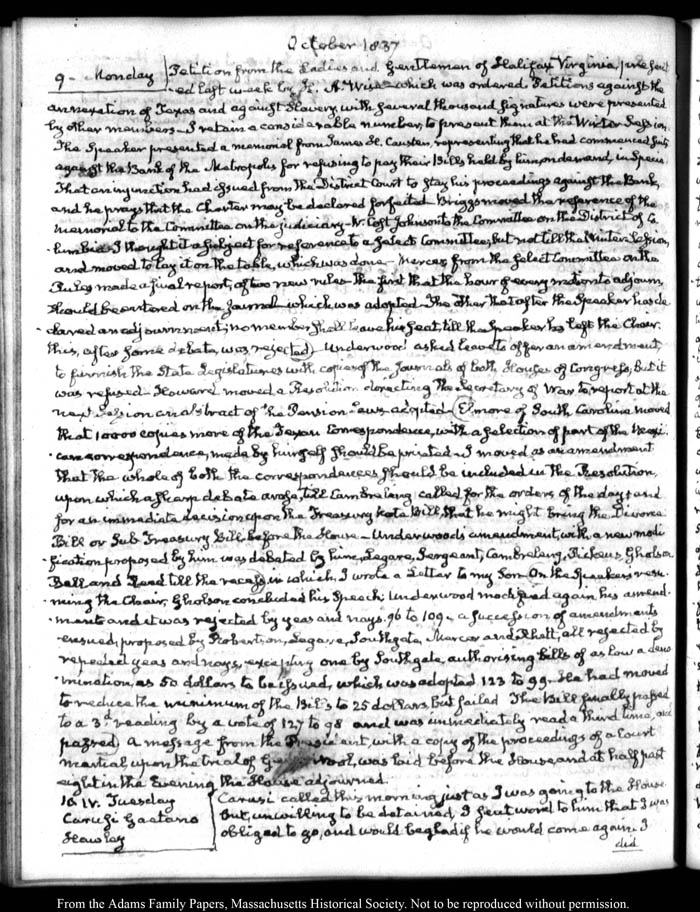 October 1837
9. Monday Petition from the Ladies and Gentlemen of Halifax Virginia, present
ed last week by H. A. Wise which was ordered. Petitions against the
annexation of Texas and against Slavery with several thousand signatures were presented
by other members. I retain a considerable number, to present them at the Winter Session.
The Speaker presented a memorial from James H. Causten, representing that he had commenced suits
against the Bank of the Metropolis for refusing to pay their Bills held by him, on demand, in Specie
That an injunction had issued from the District Court to stay his proceedings against the Bank,
and he prays that the Charter may be declared forfeited. Briggs moved the reference of the
Memorial to the Committee on the judiciary. W. Cost Johnson to the Committee on the District of Co
lumbia. I thought it a subject for reference to a Select Committee, but not till the Winter Session,
and moved to lay it on the table, which was done. Mercer from the Select Committee on the
Rules made a final report, of two new rules. The first that the hour of every motion to adjourn,
should be entered on the Journal which was adopted. The other that after the Speaker has de
clared an adjournment, no member shall leave his seat, till the Speaker has left the Chair.
this, after some debate, was rejected. Underwood asked leave to offer an amendment
to furnish the State Legislatures with copies of the Journals of both Houses of Congress, but it
was refused. Howard moved a Resolution directing the Secretary of War to report at the
next Session an abstract of the Pension Laws adopted. Elmore of South Carolina moved
that 10000 copies more of the Texan Correspondence, with a selection of part of the Mexi
can correspondence, made by himself should be printed. I moved as an amendment
that the whole of both the correspondences should be included in the Resolution,
upon which a sharp debate arose, till Cambreleng called for the orders of the day; and
for an immediate decision upon the Treasury Note Bill, that he might bring the Divorce
Bill or Sub Treasury Bill before the House. Underwoods amendment, with a new modi
fication proposed by him was debated by him, Legare, Sergeant, Cambreleng, Pickens, Gholson
Bell and Reed till the recess, in which, I wrote a Letter to my Son. On the Speakers resu
ming the Chair, Gholson concluded his Speech; Underwood modified again his amend
ment and it was rejected by yeas and nays. 96 to 109. a succession of amendments
ensued, proposed by Robertson, Legare, Southgate, Mercer and Rhett, all rejected by
repeated yeas and nays, excepting one by Southgate, authorising Bills of as low a deno
mination, as 50 dollars to be issued, which was adopted 123 to 99. He had moved
to reduce the minimum of the Bills to 25 dollars but failed. The Bill finally passed
to a 3.d reading by a vote of 127 to 98 and was immediately read a third time, and
passed. A message from the President, with a copy of the proceedings of a Court
martial upon the trial of Wool, was laid before the House and at half past
eight in the Evening the House adjourned.
10. IV. Tuesday Carusi called this morning just as I was going to the House
Carusi Gaetano But, unwilling to be detained, I sent word to him that I was
Hawley obliged to go, and would be glad if he would come again. I
did
From the Adams Family Papers, Massachusetts Historical Society. Not to be reproduced without permission.